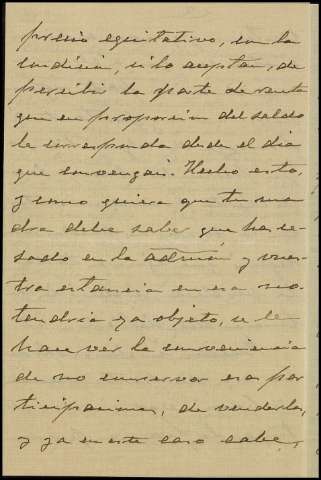 precio equitativo, con la
condición, si lo aceptan, de
percibir la parte de renta
que en proporción del saldo
le corresponda desde el dia
que convengais. Hecho esto,
y como quiera que tu ma
dre debe saber que has ce-
sado en la admón y vues-
tra estancia en esa no
tendria ya objeto, se le
hace vér la conveniencia
de no conservar esas par
ticipaciones, de venderlas,
y ya en este caso sabe,